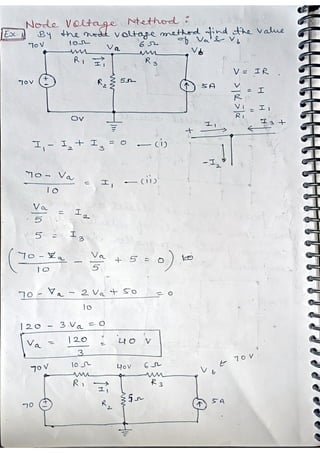 Node Voltage Method :
Ex-1 By the node voltage method find the value of Va & Vb
70V 10Ω Va 6Ω Vb
R1 → I1 R3
70V R2 5Ω 5A
0V
V = IR
V/R = I
V1/R1 = I1
+ I1 I3 +
-I2
I1 - I2 + I3 = 0 — (i)
70 - Va / 10 = I1 — (ii)
Va / 5 = I2
5 = I3
( 70 - Va / 10 - Va / 5 + 5 = 0 )
70 - Va - 2Va + 50 / 10 = 0
120 - 3Va = 0
Va = 120 / 3 = 40 V
70V 10Ω 40V 6Ω Vb 70V
R1 → I1 R3
70 R2 5Ω 5A